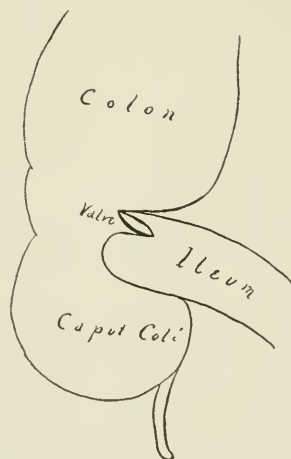 Colon
Valve
Ileum
Caput Coli